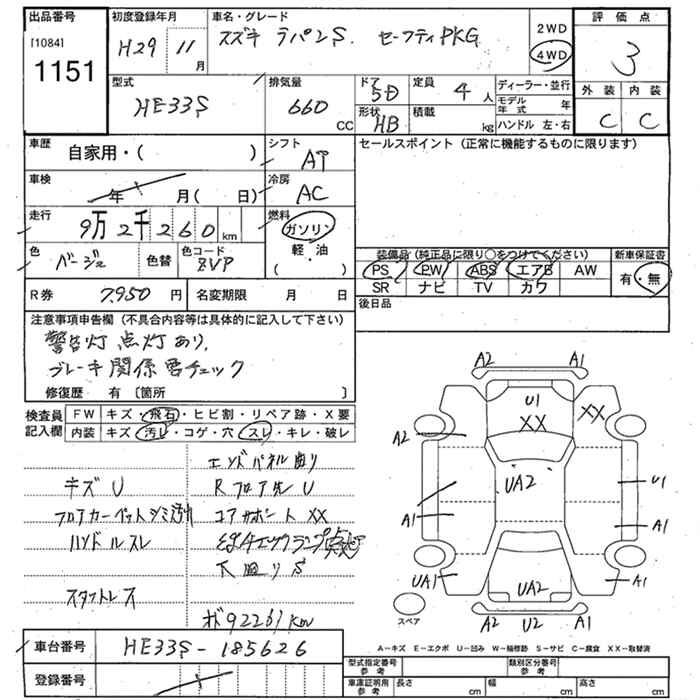 出品番号
[1084]
1151
初度登録年月
H29 年 11 月
車名・グレード
スズキ ラパンS. セーフティPKG
2WD
4WD
評価点
3
外装 内装
C C
型式
HE33S
排気量
660 CC
ドア 5D
形状 HB
定員 4人
積載 kg
ディーラー・並行
モデル年式 年
ハンドル 左・右
車歴
自家用・( )
シフト
AT
セールスポイント (正常に機能するものに限ります)
車検
年 月( 日)
冷房
AC
走行
9万2千260 km
燃料
ガソリン
軽・油
( )
色
ベージュ
色替
色コード
ZVP
装備品(純正品に限り○をつけてください)
新車保証書
PS PW ABS エアB AW
有・無
SR ナビ TV カワ
R券 7,950円
名変期限 月 日
後日品
注意事項申告欄 (不具合内容等は具体的に記入して下さい)
警告灯 点灯あり、
ブレーキ関係 要チェック
修復歴 有 [箇所 ]
検査員記入欄
FW キズ・飛石・ヒビ割・リペア跡・X要
内装 キズ・汚レ・コゲ・穴・スレ・キレ・破レ
エンドパネル曲り
キズ U
Rフロア先 U
フロアカーペットシミ
コアサポート XX
ハンドルスレ
下回りS
スタットレス
メ 92261Km
A2 A1
U1
XX XX
A2
UA2
U1
A1 A1
UA1 A1
UA2
A2 U2 A1
スペア
A-キズ E-エクボ U-凹み W-補修跡 S-サビ C-腐食 XX-取替済
車台番号 HE33S-185626
登録番号
型式指定番号 参考
類別区分番号 参考
車庫証明用 参考
長さ cm
幅 cm
高さ cm